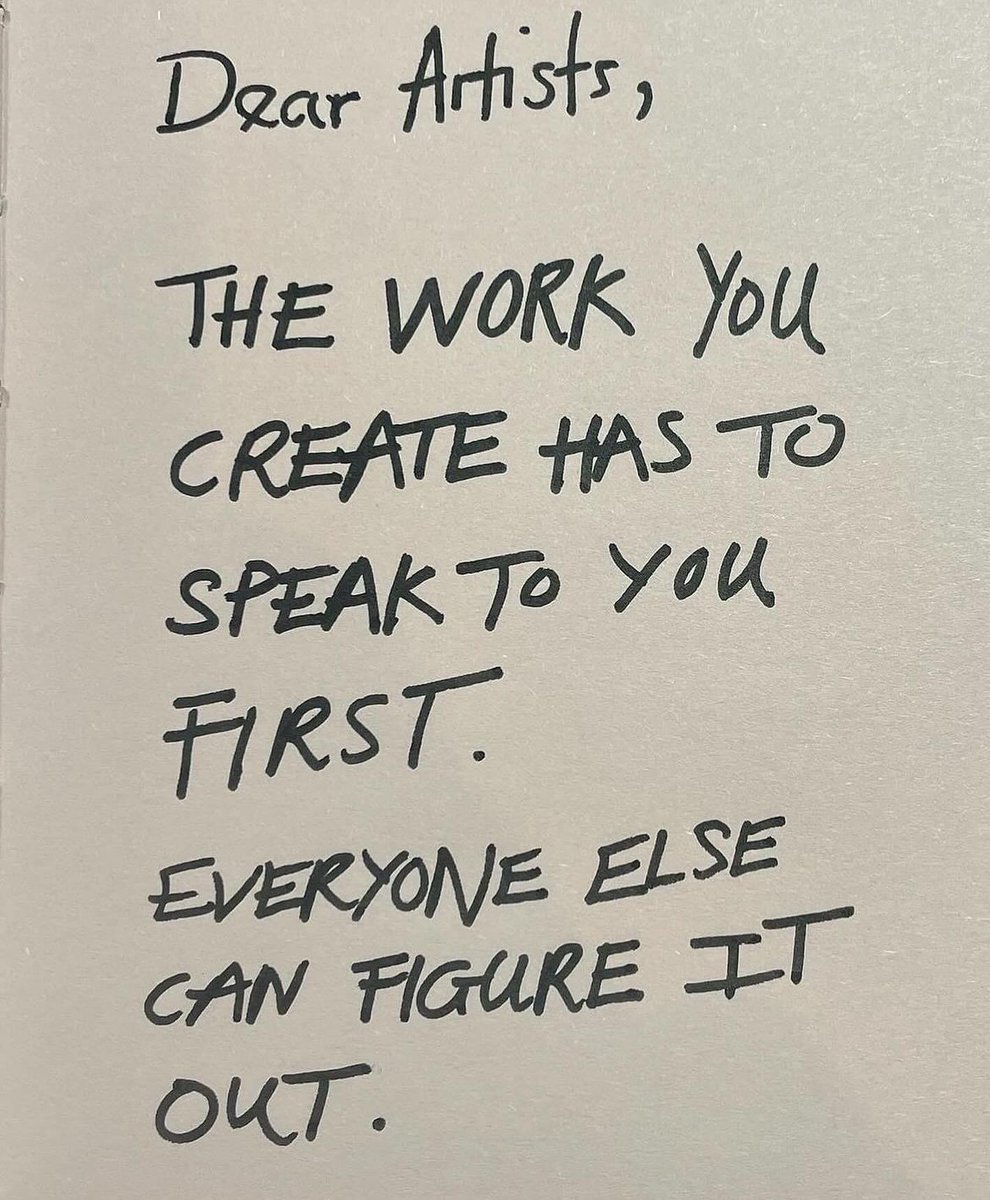 Dear Artists,
THE WORK YOU
CREATE HAS TO
SPEAK TO YOU
FIRST.
EVERYONE ELSE
CAN FIGURE IT
OUT.